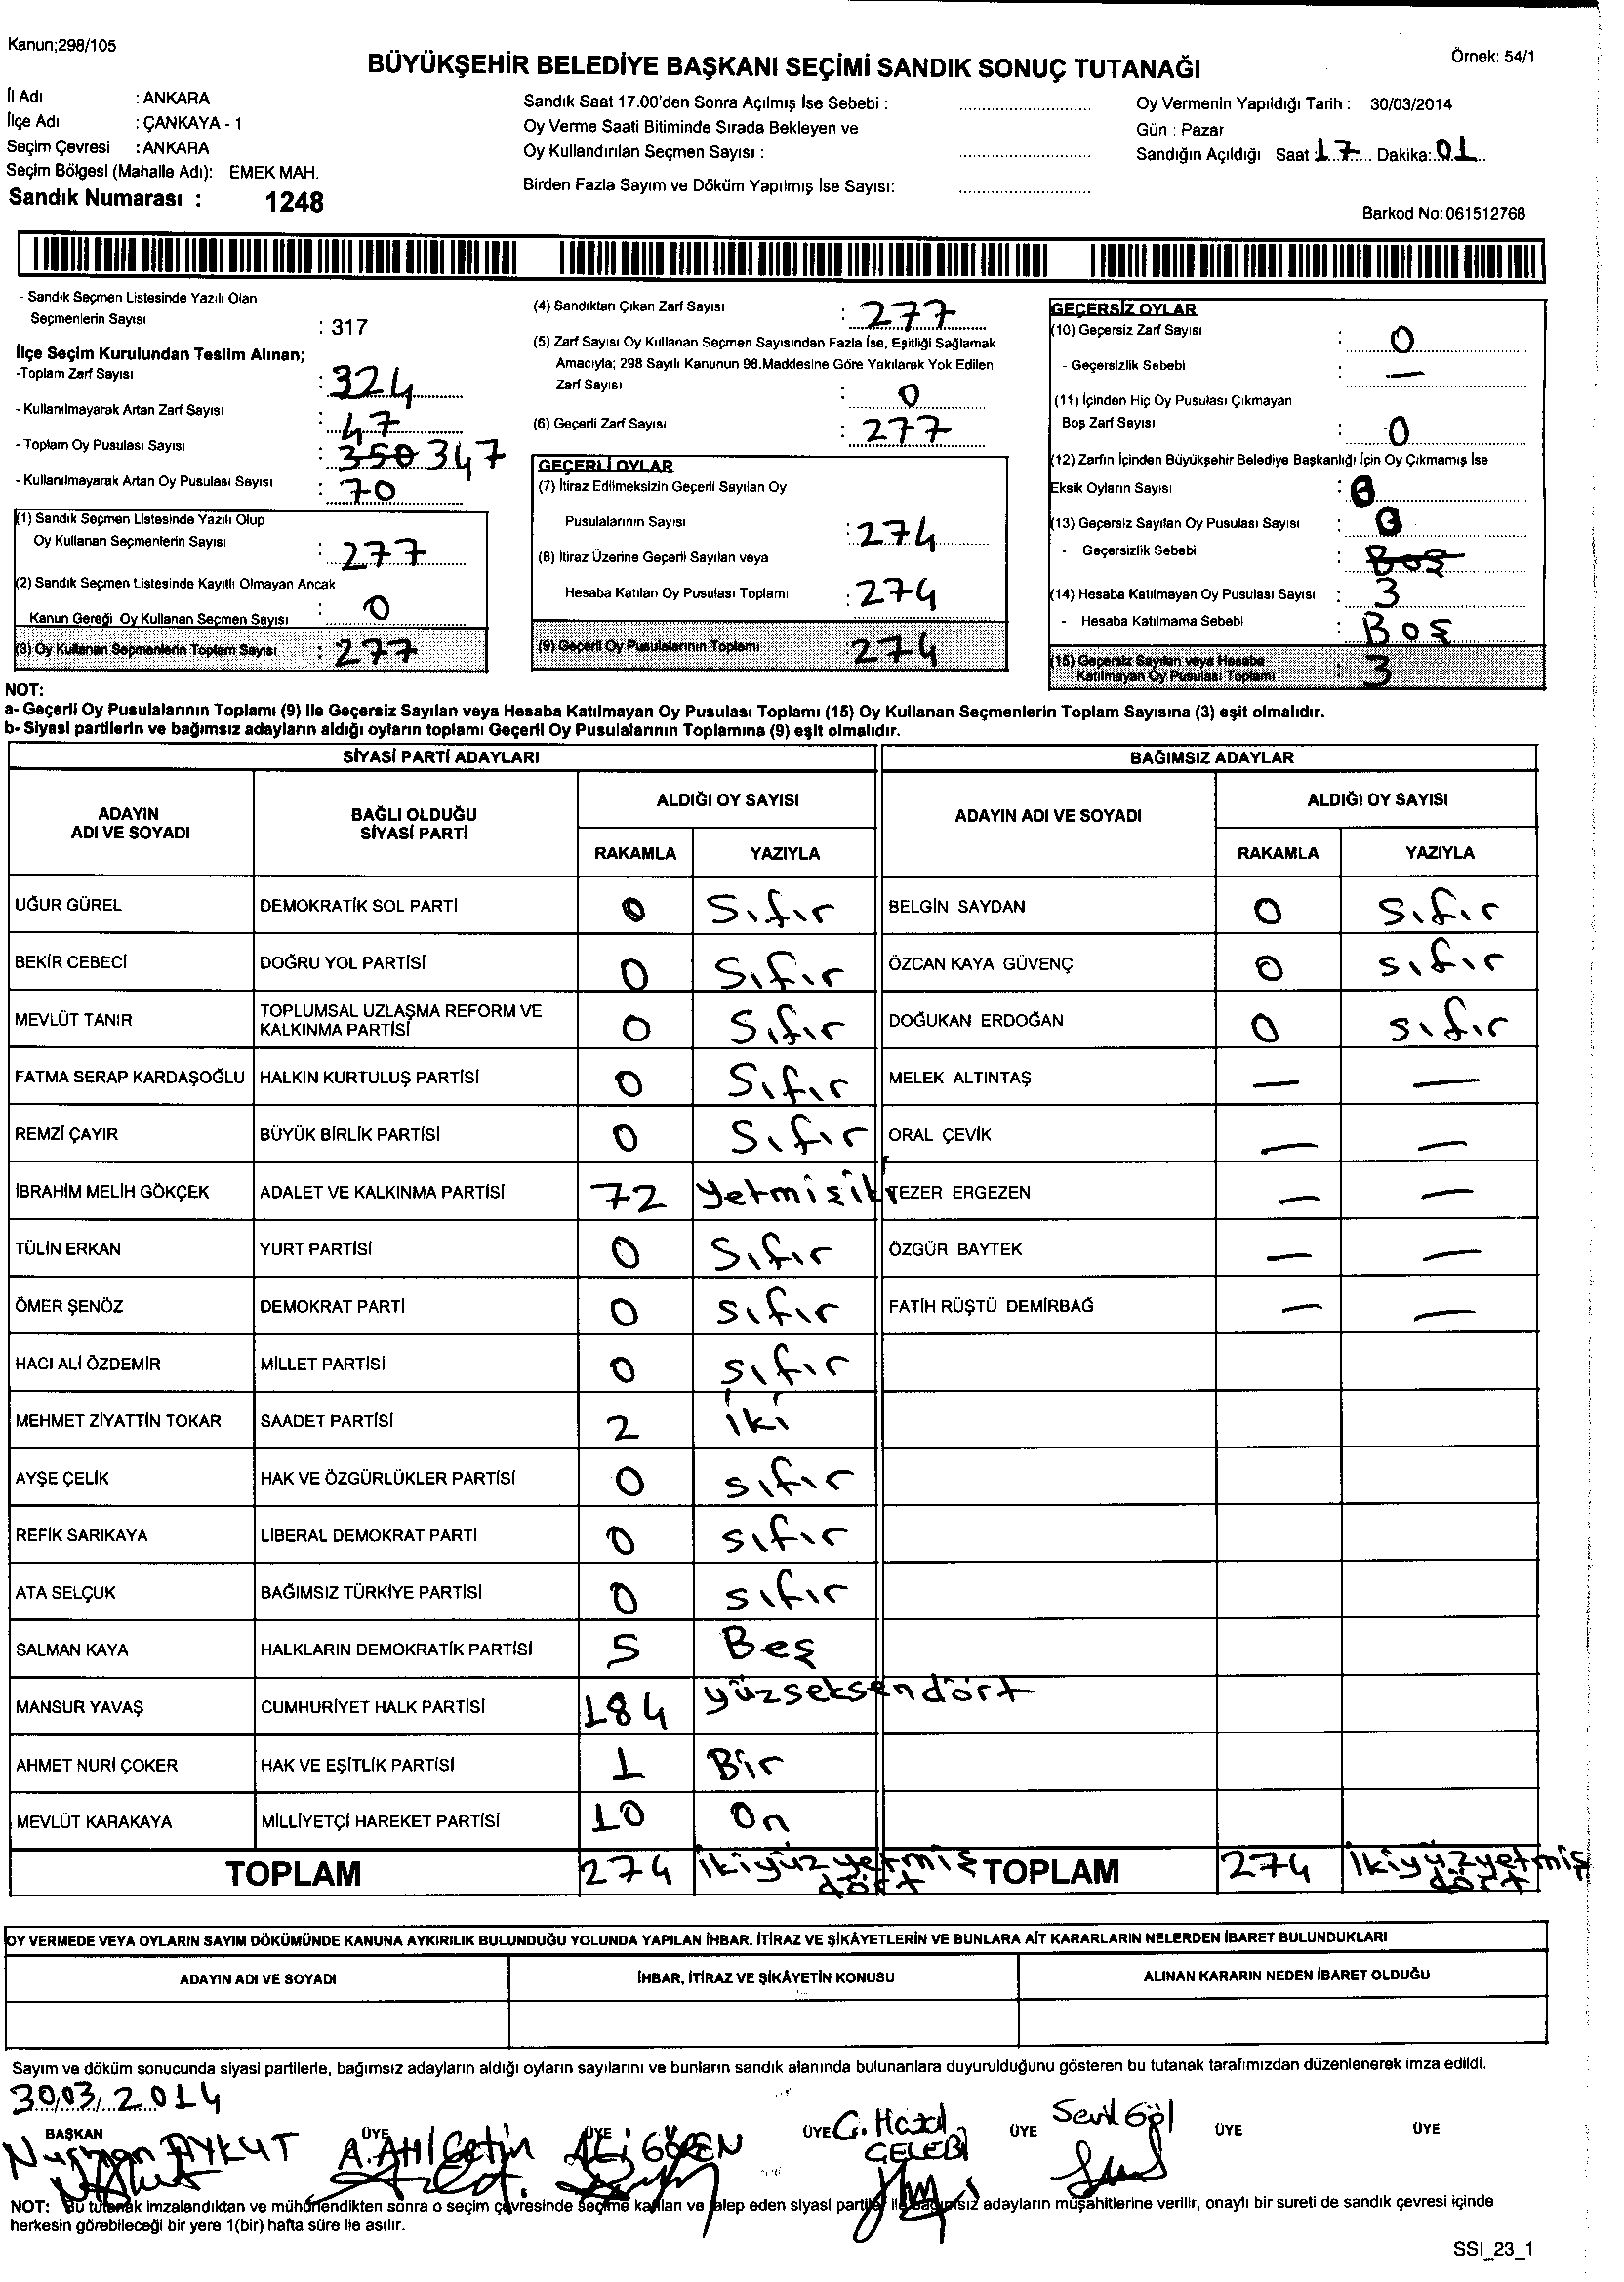 Kanun;298/105
Örnek: 54/1
BÜYÜKŞEHİR BELEDİYE BAŞKANI SEÇİMİ SANDIK SONUÇ TUTANAĞI
İl Adı : ANKARA
İlçe Adı : ÇANKAYA - 1
Seçim Çevresi : ANKARA
Seçim Bölgesi (Mahalle Adı): EMEK MAH.
Sandık Numarası : 1248
Sandık Saat 17.00'den Sonra Açılmış İse Sebebi :
Oy Verme Saati Bitiminde Sırada Bekleyen ve
Oy Kullandırılan Seçmen Sayısı :
Birden Fazla Sayım ve Döküm Yapılmış İse Sayısı:
Oy Vermenin Yapıldığı Tarih : 30/03/2014
Gün : Pazar
Sandığın Açıldığı Saat : 17 Dakika: 01
Barkod No: 061512768
- Sandık Seçmen Listesinde Yazılı Olan
Seçmenlerin Sayısı : 317
İlçe Seçim Kurulundan Teslim Alınan;
-Toplam Zarf Sayısı : 324
- Kullanılmayarak Artan Zarf Sayısı : 47
- Toplam Oy Pusulası Sayısı : 350 347
- Kullanılmayarak Artan Oy Pusulası Sayısı : 70
(1) Sandık Seçmen Listesinde Yazılı Olup
Oy Kullanan Seçmenlerin Sayısı : 277
(2) Sandık Seçmen Listesinde Kayıtlı Olmayan Ancak
Kanun Gereği Oy Kullanan Seçmen Sayısı : 0
(3) Oy Kullanan Seçmenlerin Toplam Sayısı : 277
(4) Sandıktan Çıkan Zarf Sayısı : 277
(5) Zarf Sayısı Oy Kullanan Seçmen Sayısından Fazla İse, Eşitliği Sağlamak
Amacıyla; 298 Sayılı Kanunun 98.Maddesine Göre Yakılarak Yok Edilen
Zarf Sayısı : 0
(6) Geçerli Zarf Sayısı : 277
GEÇERLİ OYLAR
(7) İtiraz Edilmeksizin Geçerli Sayılan Oy
Pusulalarının Sayısı : 274
(8) İtiraz Üzerine Geçerli Sayılan veya
Hesaba Katılan Oy Pusulası Toplamı : 274
(9) Geçerli Oy Pusulalarının Toplamı 274
GEÇERSİZ OYLAR
(10) Geçersiz Zarf Sayısı : 0
- Geçersizlik Sebebi : —
(11) İçinden Hiç Oy Pusulası Çıkmayan
Boş Zarf Sayısı : 0
(12) Zarfın İçinden Büyükşehir Belediye Başkanlığı İçin Oy Çıkmamış İse
Eksik Oyların Sayısı : 0
(13) Geçersiz Sayılan Oy Pusulası Sayısı : 0
- Geçersizlik Sebebi : Boş
(14) Hesaba Katılmayan Oy Pusulası Sayısı : 3
- Hesaba Katılmama Sebebi : Boş
(15) Geçersiz Sayılan veya Hesaba
Katılmayan Oy Pusulası Toplamı : 3
NOT:
a- Geçerli Oy Pusulalarının Toplamı (9) ile Geçersiz Sayılan veya Hesaba Katılmayan Oy Pusulası Toplamı (15) Oy Kullanan Seçmenlerin Toplam Sayısına (3) eşit olmalıdır.
b- Siyasi partilerin ve bağımsız adayların aldığı oyların toplamı Geçerli Oy Pusulalarının Toplamına (9) eşit olmalıdır.
SİYASİ PARTİ ADAYLARI BAĞIMSIZ ADAYLAR
ADAYIN ADI VE SOYADI BAĞLI OLDUĞU SİYASİ PARTİ ALDIĞI OY SAYISI ADAYIN ADI VE SOYADI ALDIĞI OY SAYISI
RAKAMLA YAZIYLA RAKAMLA YAZIYLA
UĞUR GÜREL DEMOKRATİK SOL PARTİ 0 Sıfır BELGİN SAYDAN 0 Sıfır
BEKİR CEBECİ DOĞRU YOL PARTİSİ 0 Sıfır ÖZCAN KAYA GÜVENÇ 0 sıfır
MEVLÜT TANIR TOPLUMSAL UZLAŞMA REFORM VE KALKINMA PARTİSİ 0 Sıfır DOĞUKAN ERDOĞAN 0 sıfır
FATMA SERAP KARDAŞOĞLU HALKIN KURTULUŞ PARTİSİ 0 Sıfır MELEK ALTINTAŞ — —
REMZİ ÇAYIR BÜYÜK BİRLİK PARTİSİ 0 Sıfır ORAL ÇEVİK — —
İBRAHİM MELİH GÖKÇEK ADALET VE KALKINMA PARTİSİ 72 Yetmişiki TEZER ERGEZEN — —
TÜLİN ERKAN YURT PARTİSİ 0 Sıfır ÖZGÜR BAYTEK — —
ÖMER ŞENÖZ DEMOKRAT PARTİ 0 sıfır FATİH RÜŞTÜ DEMİRBAĞ — —
HACI ALİ ÖZDEMİR MİLLET PARTİSİ 0 sıfır
MEHMET ZİYATTİN TOKAR SAADET PARTİSİ 2 iki
AYŞE ÇELİK HAK VE ÖZGÜRLÜKLER PARTİSİ 0 sıfır
REFİK SARIKAYA LİBERAL DEMOKRAT PARTİ 0 sıfır
ATA SELÇUK BAĞIMSIZ TÜRKİYE PARTİSİ 0 sıfır
SALMAN KAYA HALKLARIN DEMOKRATİK PARTİSİ 5 Beş
MANSUR YAVAŞ CUMHURİYET HALK PARTİSİ 184 yüzseksendört
AHMET NURİ ÇOKER HAK VE EŞİTLİK PARTİSİ 1 Bir
MEVLÜT KARAKAYA MİLLİYETÇİ HAREKET PARTİSİ 10 On
TOPLAM 274 ikiyüzyetmiş dört TOPLAM 274 ikiyüzyetmiş dört
OY VERMEDE VEYA OYLARIN SAYIM DÖKÜMÜNDE KANUNA AYKIRILIK BULUNDUĞU YOLUNDA YAPILAN İHBAR, İTİRAZ VE ŞİKÂYETLERİN VE BUNLARA AİT KARARLARIN NELERDEN İBARET BULUNDUKLARI
ADAYIN ADI VE SOYADI İHBAR, İTİRAZ VE ŞİKÂYETİN KONUSU ALINAN KARARIN NEDEN İBARET OLDUĞU
Sayım ve döküm sonucunda siyasi partilerle, bağımsız adayların aldığı oyların sayılarını ve bunların sandık alanında bulunanlara duyurulduğunu gösteren bu tutanak tarafımızdan düzenlenerek imza edildi.
30/03/2014
BAŞKAN ÜYE ÜYE ÜYE ÜYE ÜYE ÜYE
AYKUT A. Atıl Çetin Ali GÖREN ÇELEBİ Sevil Göl
NOT: Bu tutanak imzalandıktan ve mühürlendikten sonra o seçim çevresinde seçime katılan ve talep eden siyasi partiler ile bağımsız adayların müşahitlerine verilir, onaylı bir sureti de sandık çevresi içinde
herkesin görebileceği bir yere 1(bir) hafta süre ile asılır.
SSI_23_1